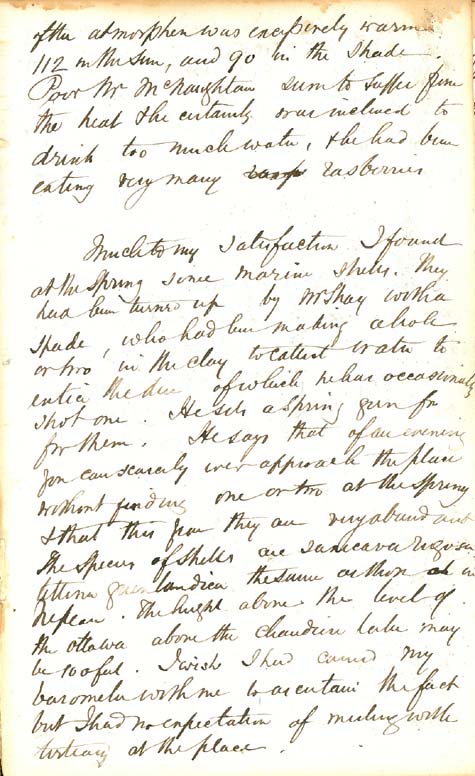 of the atmosphere was excessively warm
112 in the sun, and 90 in the shade
Poor Mr McNaughtan seem to suffer from
the heat & he certainly was inclined to
drink too much water, & he had been
eating very many rasp rasberries
Much to my satisfaction I found
at the spring some marine shells. They
had been turned up by Mr Shay with a
spade, who had been making a hole
or two in the clay to catch water to
entice the deer of which he has occasionally
shot one. He sets a spring gun for
for them. He says that of an evening
you can scarcely ever approach the place
without finding one or two at the spring
& that this year they are very abundant
The species of shells are saxicava rugosa
tellina groenlandica the same as those at
Nepean. The hight above the level of
the Ottawa above the Chaudiere lake may
be 100 feet. I wish I had carried my
barometer with me to ascertain the fact
but I had no expectation of meeting with
tertiary at the place.